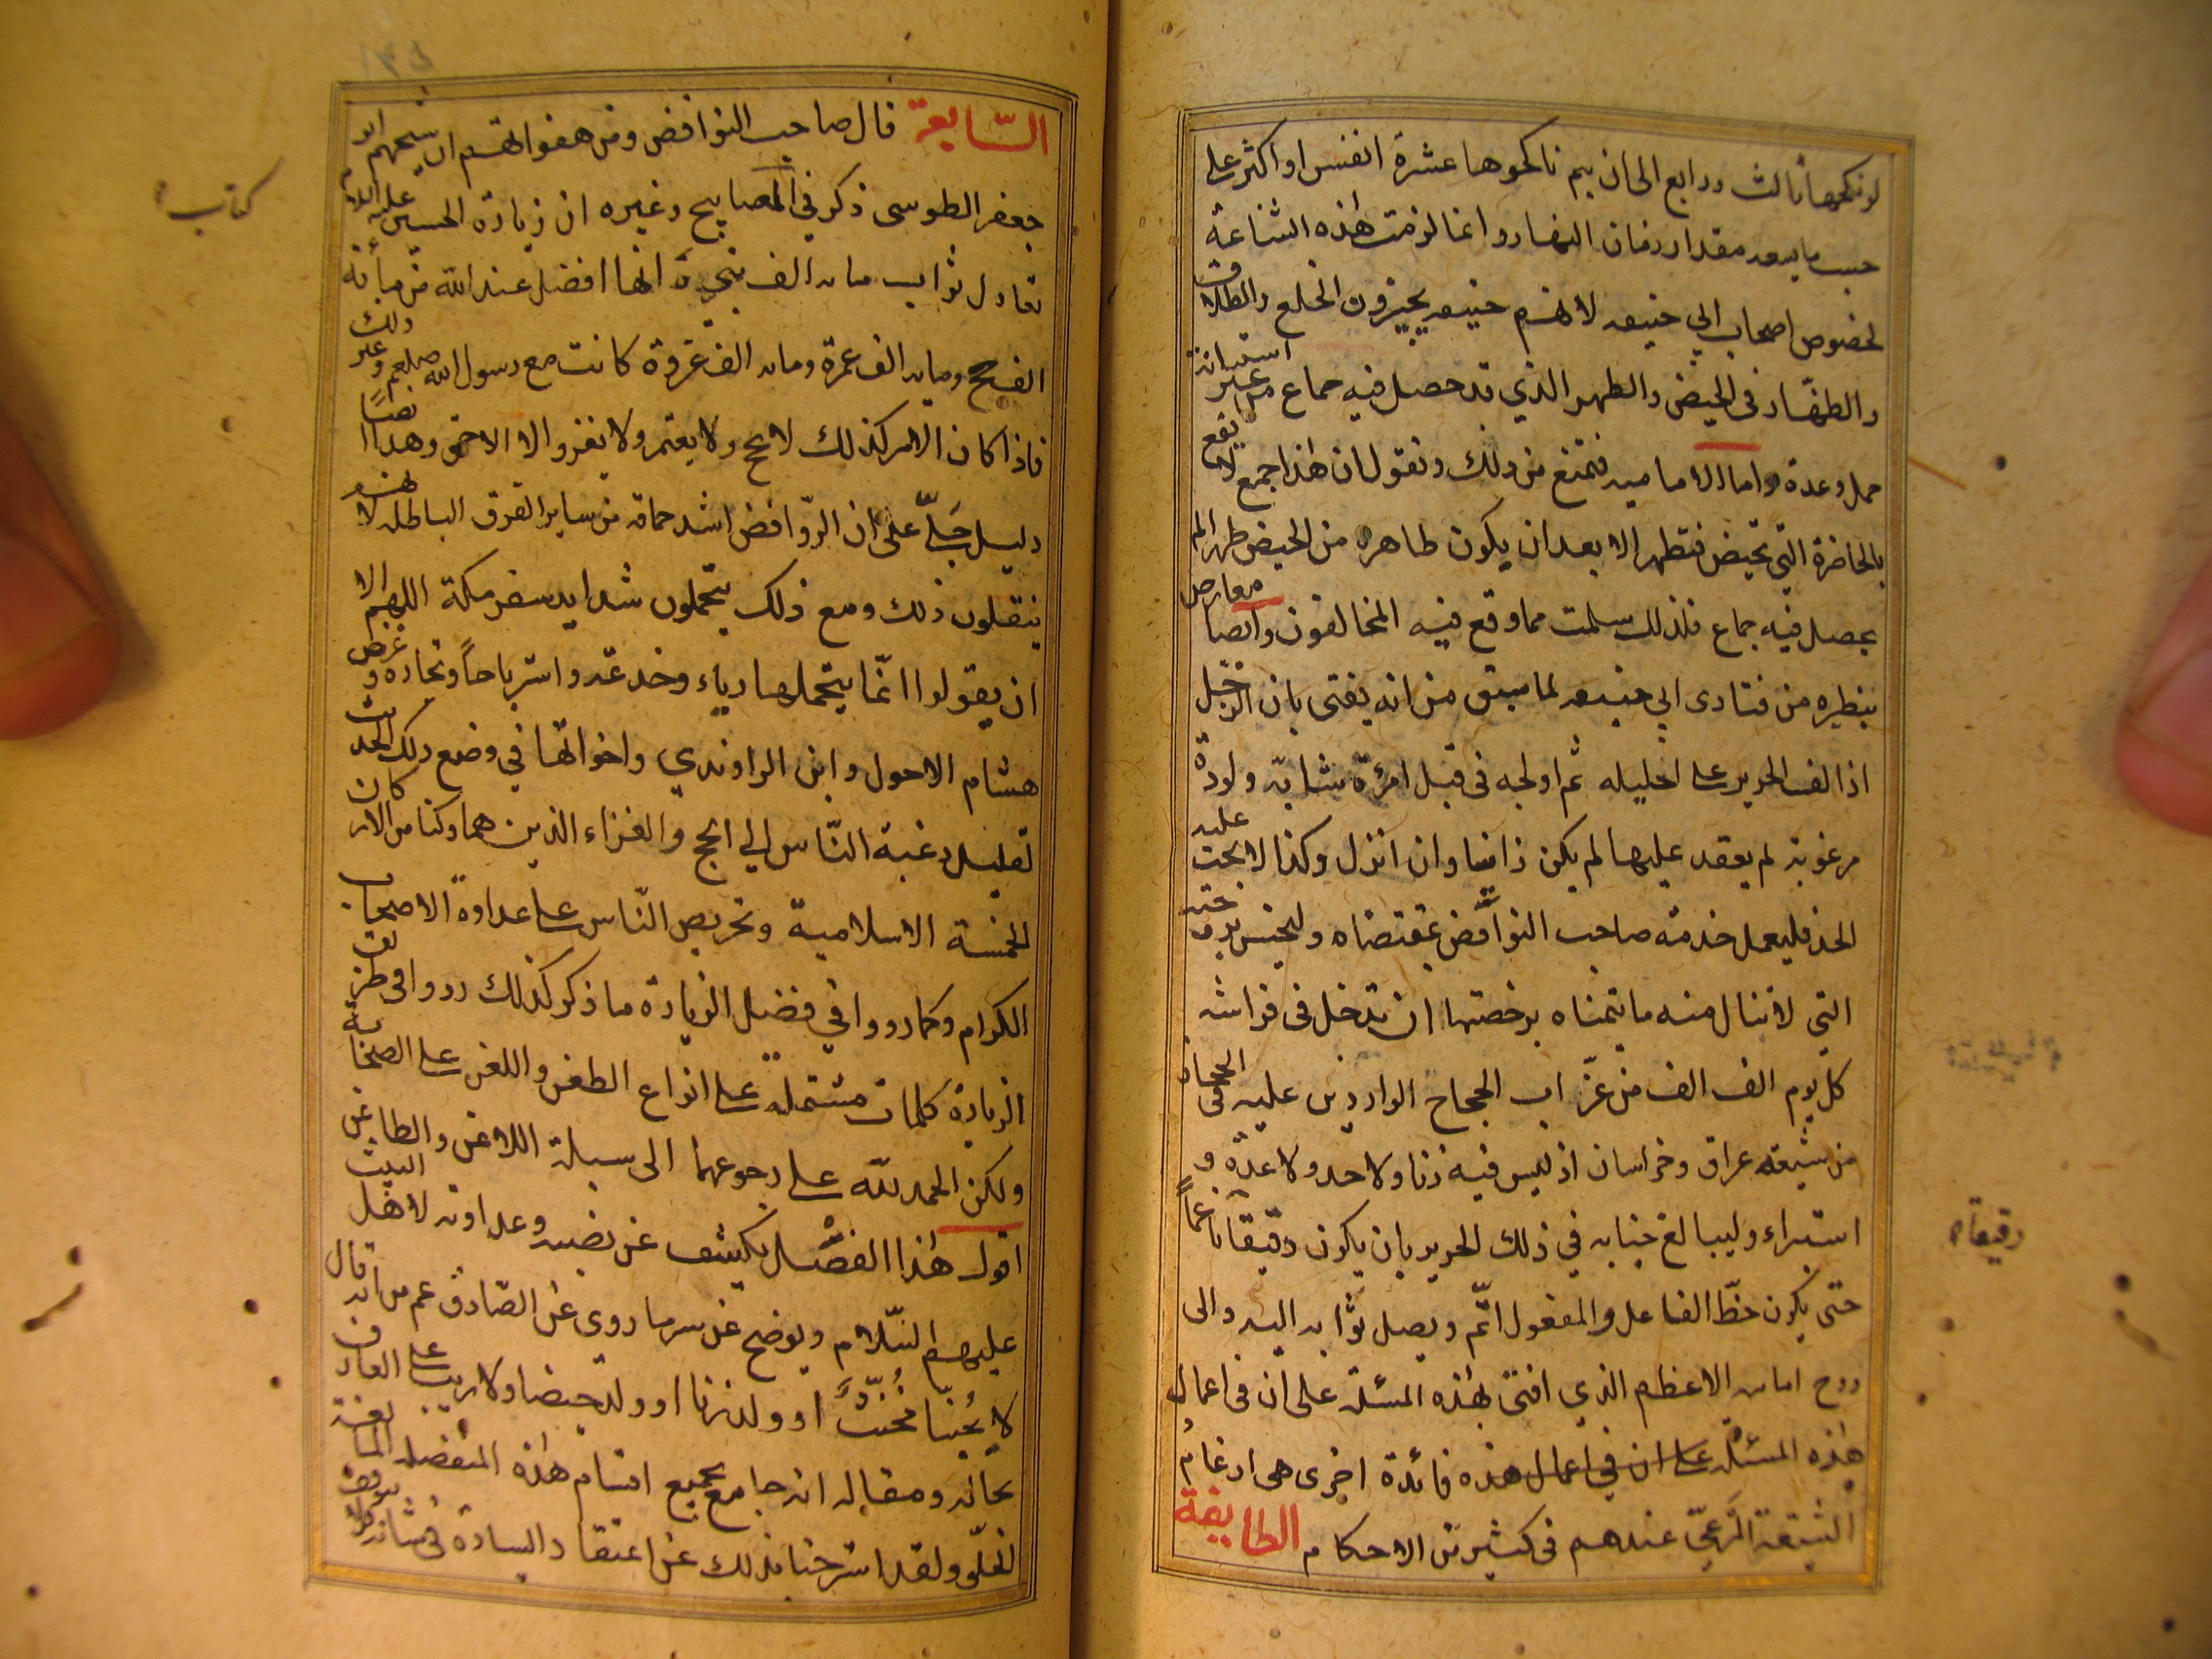 لو نكحها ثالث ورابع الى ان يتم ناكحوها عشرة انفس او اكثر على
حسب ما يسعه مقدار زمان النهار وانما لزمت هذه الشناعة
لخصوص اصحاب ابي حنيفه لانهم حينئذ يجيزون الخلع والطلاق
والظهار في الحيض والطهر الذي قد حصل فيه جماع من غير استبانة
حمل وعدة واما الاماميه فتمنع من ذلك وتقول ان هذا جمع لا يقع
بالحاضرة التي تحيض فتطهر الا بعد ان يكون طاهره من الحيض طهرا لم
يحصل فيه جماع فلذلك سلمت مما وقع فيه المخالفون وايضا معارض
بنظيره من فتاوى ابي حنيفه لما سبق من انه يفتي بان الرجل
اذا لف الحرير على احليله ثم اولجه في قبل امرئة شابة ولودة
مرغوبة لم يعقد عليها لم يكن زانيا وان انزل وكذا لا يجب عليه
الحد فليعمل خدمة صاحب النواقض بمقتضاه
التي لا تنال منه ما يتمناه برخصتها ان تدخل في فراشه
كل يوم الف الف من عزّاب الحجاج الواردين عليه في الحجاز
من شيعة عراق وخراسان اذ ليس فيه زنا ولا حد ولا عدة و
استبراء وليبالغ جنابه في ذلك الحرير بان يكون رقيقا ناعماً
حتى يكون حظّ الفاعل والمفعول اتمّ ويصل ثوابه اليه والى
روح امامه الاعظم الذي افتى بهذه المسئلة على ان في اعمال
هذه المسئلة على ان في اعمال هذه فائدة اخرى هي ارغام
الشيعة المرعيّ عندهم في كثير من الاحكام الطايفة
رقيقا
السّابعة قال صاحب النواقض ومن هفواتهم ان شيخهم ابو
جعفر الطوسى ذكر في المصابيح وغيره ان زيارة الحسين عليه السلام
تعادل ثواب مايه الف بل انها افضل عند الله من مأية
الف حج ومايه الف عمرة ومايه الف غزوة كانت مع رسول الله صلعم وغير ذلك
فاذا كان الامر كذلك لا يحج ولا يعتمر ولا يغزوا الا الاحمق وهذا ايضًا
دليل جَلىّ على ان الروّافض اشد حماقة من ساير الفرق الباطله لانهم
ينقلون ذلك ومع ذلك يتحملون شدايد سفر مكة اللهم الا
ان يقولوا انّما يتحملها رياء وخدعة واسترباحاً وتجارة وغرض
هشام الاحول وابن الراوندي واخوانها في وضع ذلك الحديث
تقليل رغبة النّاس الى الحج والغزاء الذين هما ركنا من الاركان
الخمسة الاسلامية وتحريص النّاس على عداوة الاصحاب
الكرام وكما رووا في فضل الزيارة ما ذكر كذلك رووا في طريق
الزيارة كلمات مشتملة على انواع الطعن واللعن على الصحابة
ولكن الحمد لله على رجوعهما الى سبلة اللاعن والطاعن
اقول هذا الفصل يكشف عن نصبه وعداوته لاهل البيت
عليهم السّلام ويوضح عن سر ما روى عن الصّادق عم من انه قال
لا يُحبّنا مُخنّثٌ او ولد زنا او ولد حيض ولا ريب على العارف
بحاله ومقاله انه جامع لجميع اقسام هذه المنفصله المانعة
الخلّو ولقد استرحنا بذلك عن اعتقاد السادة في شانه
كتاب